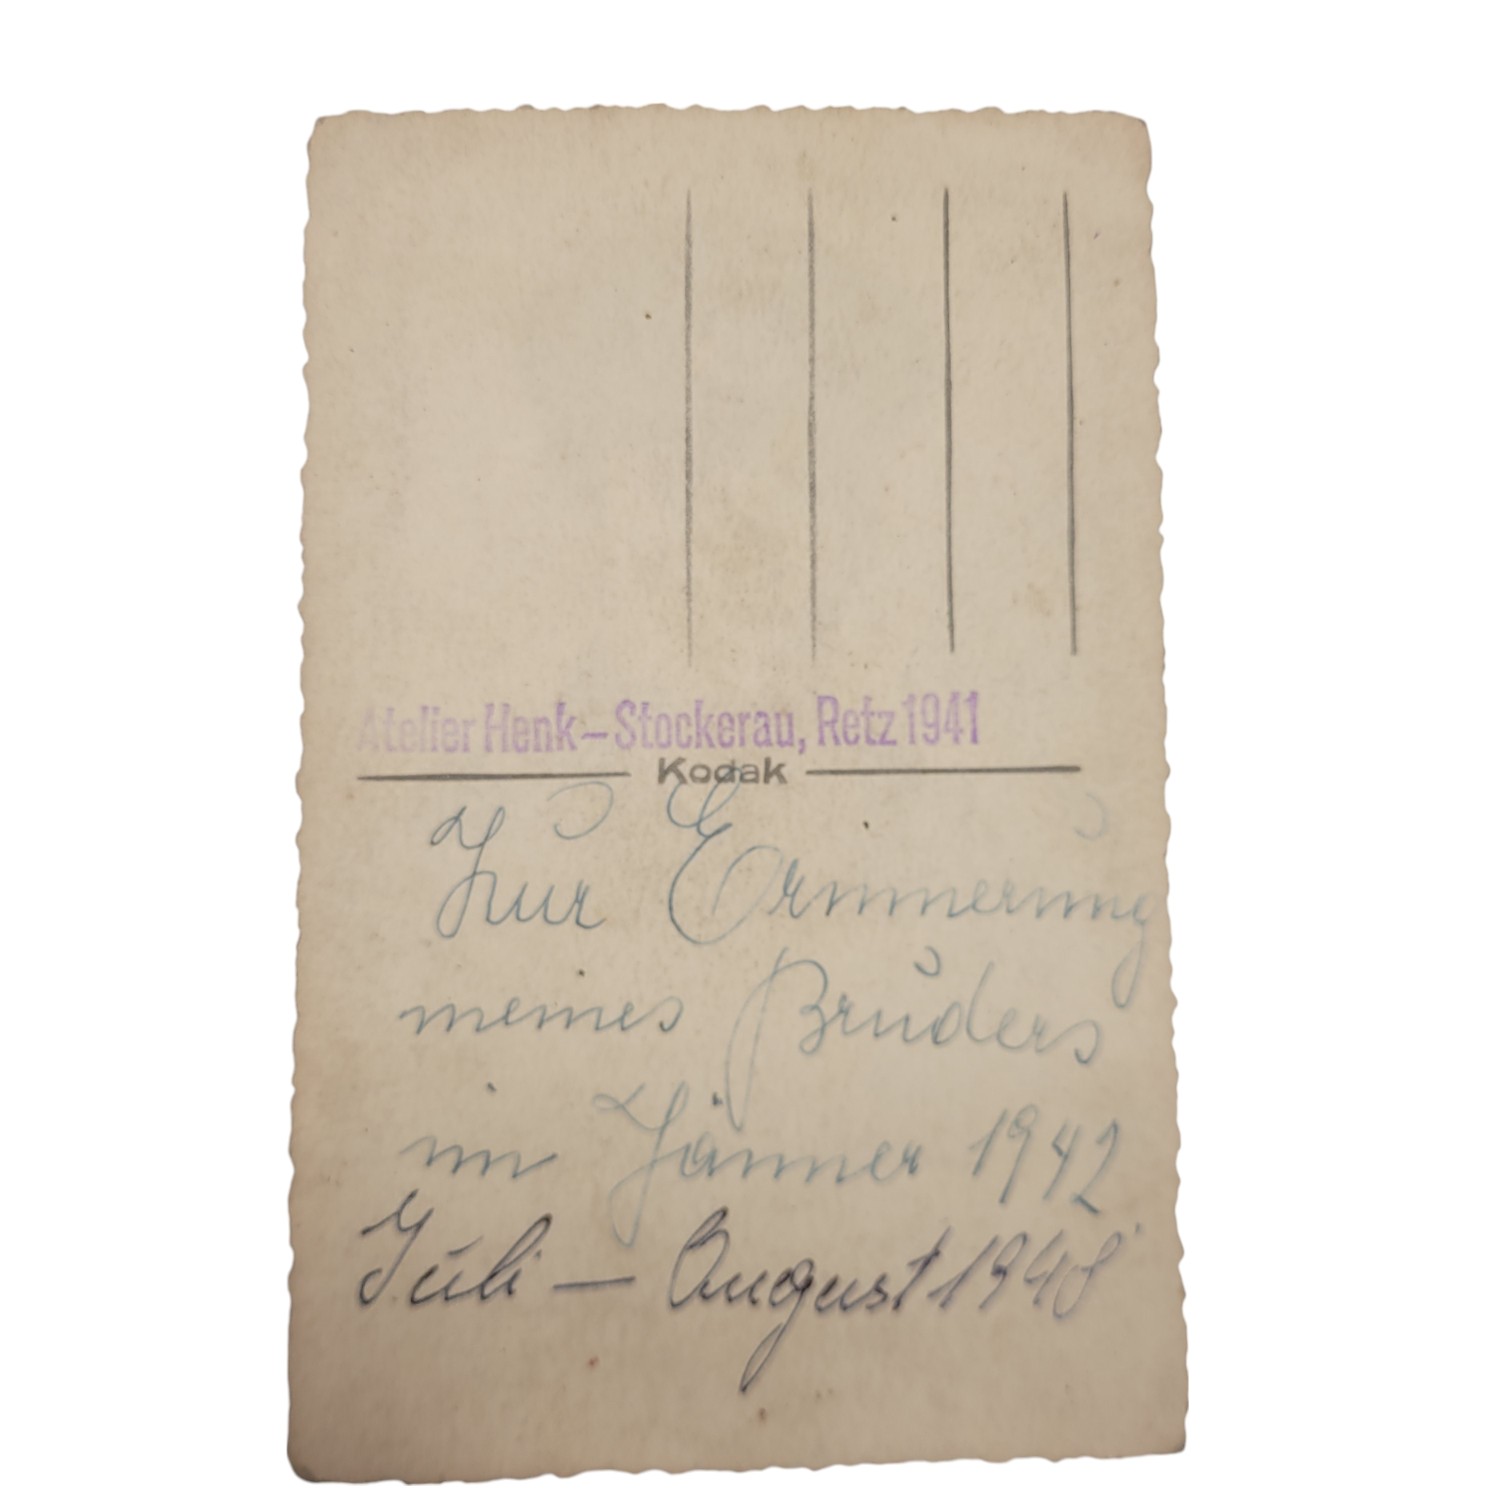 Atelier Henk – Stockerau, Retz 1941
Kodak
Zur Erinnerung
meines Bruders
im Jänner 1942
Juli – August 1948